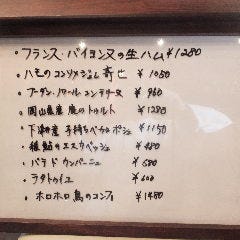 ・フランス・バイヨンヌの生ハム ¥1280
・ハモのコンソメジュレ寄せ ¥1050
・ブーダン・ノワール コンテリーヌ ¥950
・岡山県産 鹿のトゥルト ¥1280
・下津井産 子持ちベカ ポシェ ¥1150
・稚鮎のエスカベッシュ ¥680
・パテ ド カンパーニュ ¥680
・ラタトゥイユ ¥600
・ホロホロ鳥のコンフィ ¥1480